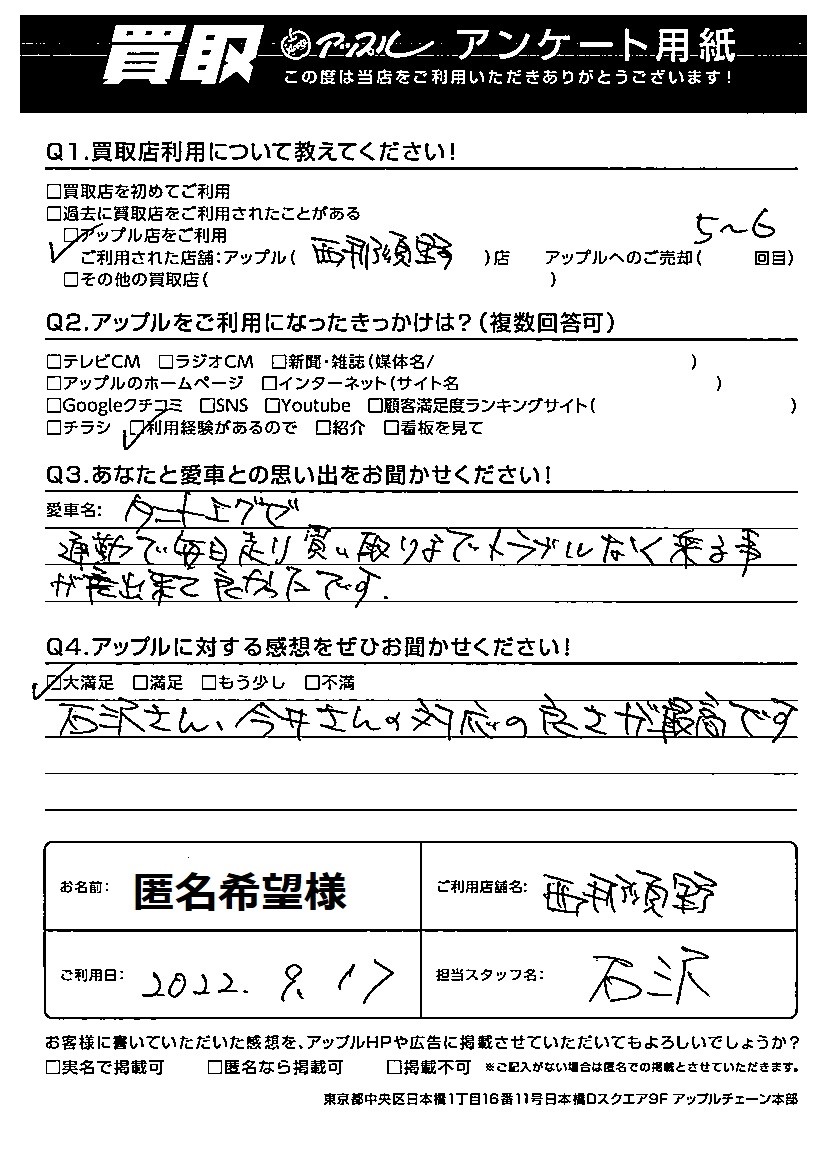 買取 アップル アンケート用紙
この度は当店をご利用いただきありがとうございます!
Q1.買取店利用について教えてください!
□買取店を初めてご利用
□過去に買取店をご利用されたことがある
□アップル店をご利用
ご利用された店舗:アップル( 西那須野 )店 アップルへのご売却( 5~6 回目)
□その他の買取店( )
Q2.アップルをご利用になったきっかけは?(複数回答可)
□テレビCM □ラジオCM □新聞・雑誌(媒体名/ )
□アップルのホームページ □インターネット(サイト名 )
□Googleクチコミ □SNS □Youtube □顧客満足度ランキングサイト( )
□チラシ □利用経験があるので □紹介 □看板を見て
Q3.あなたと愛車との思い出をお聞かせください!
愛車名:
通勤で毎日走り買い取りまでトラブルなく乗る事
が出来て良かったです.
Q4.アップルに対する感想をぜひお聞かせください!
□大満足 □満足 □もう少し □不満
石沢さん、今井さんの対応の良さが最高です
お名前: 匿名希望様
ご利用店舗名: 西那須野
ご利用日: 2022. 9. 17
担当スタッフ名: 石沢
お客様に書いていただいた感想を、アップルHPや広告に掲載させていただいてもよろしいでしょうか?
□実名で掲載可 □匿名なら掲載可 □掲載不可 ※ご記入がない場合は匿名での掲載とさせていただきます。
東京都中央区日本橋1丁目16番11号日本橋Dスクエア9F アップルチェーン本部